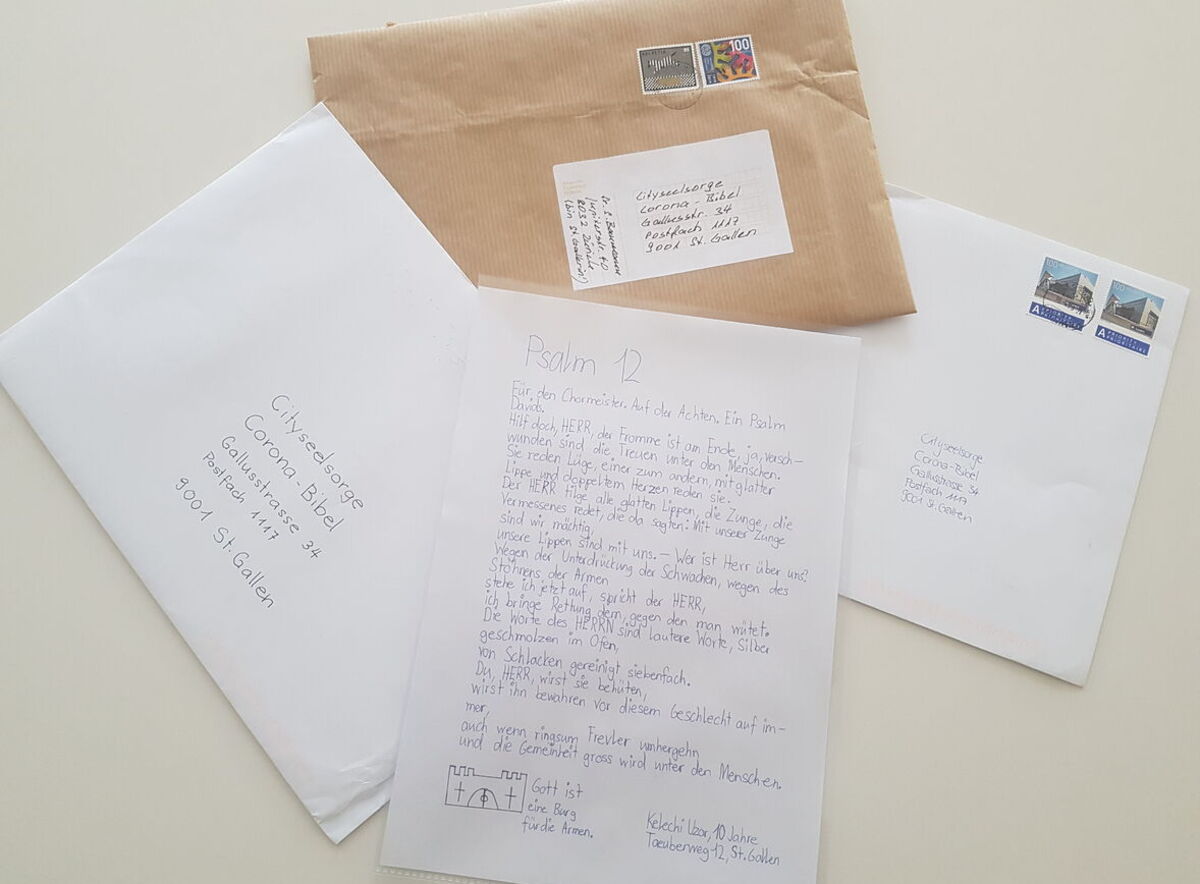 HELVETIA
100
Cityseelsorge
Corona-Bibel
Gallusstr. 34
Postfach 1117
9001 St. Gallen
8032 Zürich
(bin St. Gallerin!)
Cityseelsorge
Corona-Bibel
Gallusstrasse 34
Postfach 1117
9001 St. Gallen
100
A PRIORITY
PRIORITAIRE
100
A PRIORITY
PRIORITAIRE
Cityseelsorge
Corona-Bibel
Gallusstrasse 34
Postfach 1117
9001 St. Gallen
Psalm 12
Für den Chormeister. Auf der Achten. Ein Psalm
Davids.
Hilf doch, HERR, der Fromme ist am Ende, ja, versch-
wunden sind die Treuen unter den Menschen.
Sie reden Lüge, einer zum andern, mit glatter
Lippe und doppeltem Herzen reden sie.
Der HERR tilge alle glatten Lippen, die Zunge, die
Vermessenes redet, die da sagten: Mit unserer Zunge
sind wir mächtig,
unsere Lippen sind mit uns. - Wer ist Herr über uns?
Wegen der Unterdrückung der Schwachen, wegen des
Stöhnens der Armen
stehe ich jetzt auf, spricht der HERR,
ich bringe Rettung dem, gegen den man wütet.
Die Worte des HERRN sind lautere Worte, Silber
geschmolzen im Ofen,
von Schlacken gereinigt siebenfach.
Du, HERR, wirst sie behüten,
wirst ihn bewahren vor diesem Geschlecht auf im-
mer,
auch wenn ringsum Frevler umhergehn
und die Gemeinheit gross wird unter den Menschen.
Gott ist
eine Burg
für die Armen.
Kelechi Uzor, 10 Jahre
Taeubenweg 12, St. Gallen